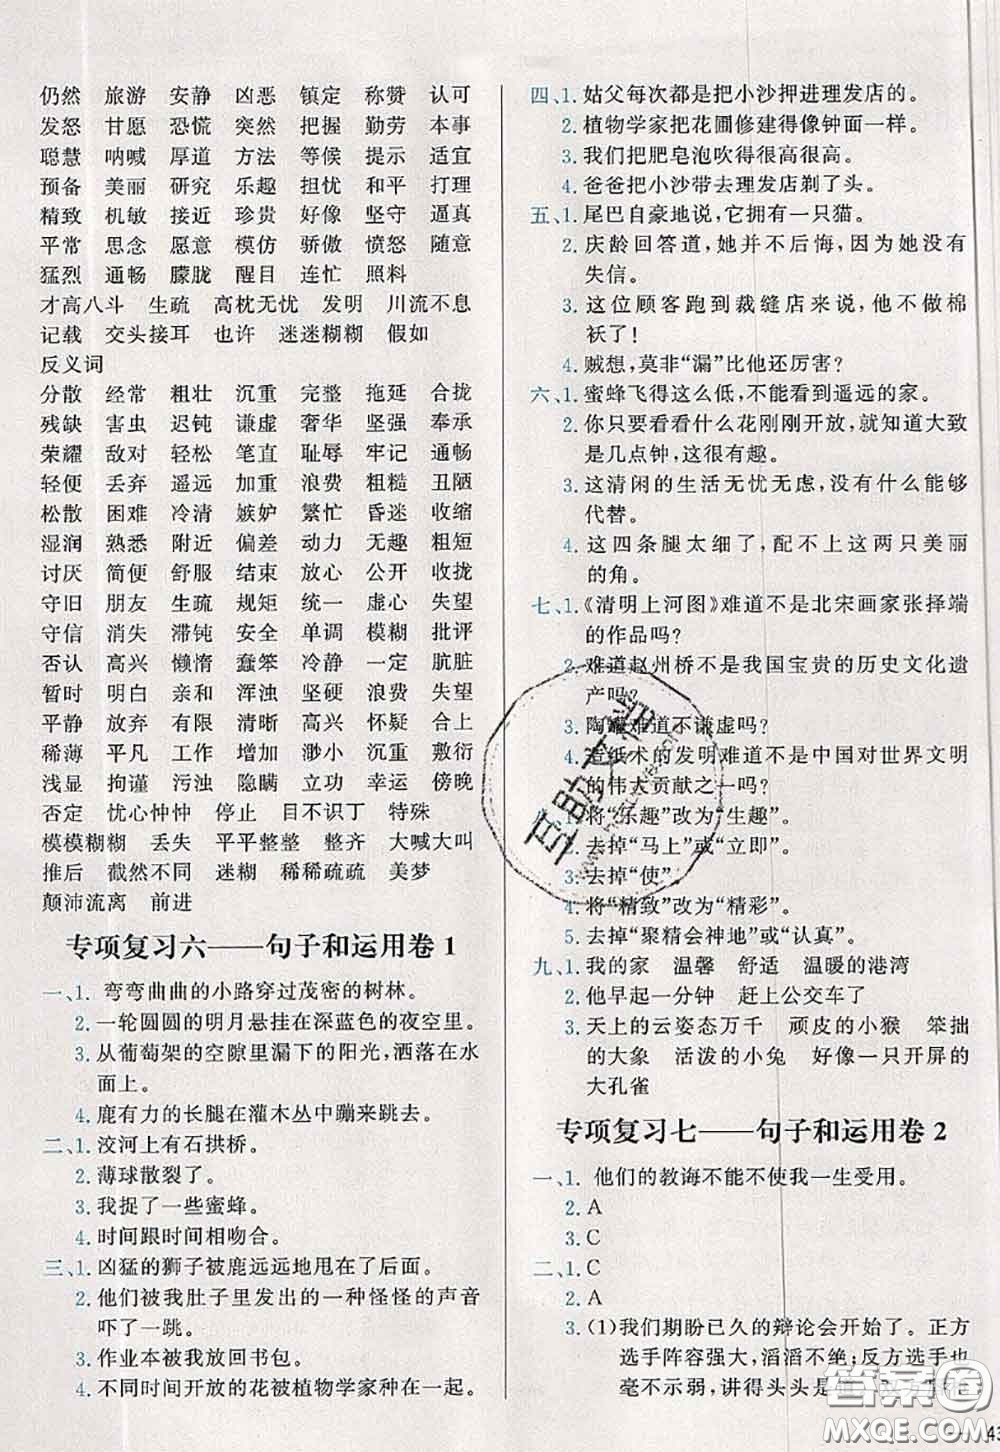 仍然 旅游 安静 凶恶 镇定 称赞 认可
发怒 甘愿 恐慌 突然 把握 勤劳 本事
聪慧 呐喊 厚道 方法 等候 提示 适宜
预备 美丽 研究 乐趣 担忧 和平 打理
精致 机敏 接近 珍贵 好像 坚守 逼真
平常 思念 愿意 模仿 骄傲 愤怒 随意
猛烈 通畅 朦胧 醒目 连忙 照料
才高八斗 生疏 高枕无忧 发明 川流不息
记载 交头接耳 也许 迷迷糊糊 假如
反义词
分散 经常 粗壮 沉重 完整 拖延 合拢
残缺 害虫 迟钝 谦虚 奢华 坚强 奉承
荣耀 敌对 轻松 笔直 耻辱 牢记 通畅
轻便 丢弃 游逛 加重 浪费 粗糙 丑陋
松散 困难 冷清 嫉妒 繁忙 昏迷 收缩
湿润 熟悉 附近 偏差 动力 无趣 粗短
讨厌 简便 舒服 结束 放心 公开 收拢
守旧 朋友 生疏 规矩 统一 虚心 失望
守信 消失 滞钝 安全 单调 模糊 批评
否认 高兴 懒惰 蠢笨 冷静 一定 肮脏
暂时 明白 亲和 浑浊 坚硬 浪费 失望
平静 放弃 有限 清晰 高兴 怀疑 合上
稀薄 平凡 工作 增加 渺小 冷静 敷衍
浅显 拘谨 污浊 隐瞒 立功 幸运 傍晚
否定 忧心忡忡 停止 目不识丁 特殊
模模糊糊 丢失 平平整整 整齐 大喊大叫
推后 截然不同 迷糊 稀稀疏疏 美梦
颠沛流离 前进
专项复习六——句子和运用卷1
一、1. 弯弯曲曲的小路穿过茂密的树林。
2. 一轮圆圆的明月悬挂在深蓝色的夜空里。
3. 从葡萄架的空隙里漏下的阳光,洒落在水
面上。
4. 鹿有力的长腿在灌木丛中蹦来跳去。
二、1. 洨河上有石拱桥。
2. 薄球散裂了。
3. 我捉了一些蜜蜂。
4. 时间跟时间相吻合。
三、1. 凶猛的狮子被鹿远远地甩在了后面。
2. 他们被我肚子里发出的一种怪怪的声音
吓了一跳。
3. 作业本被我放回书包。
4. 不同时间开放的花被植物学家种在一起。
四、1. 姑父每次都是把小沙押进理发店的。
2. 植物学家把花圃修建得像钟面一样。
3. 我们把肥皂泡吹得很高很高。
4. 爸爸把小沙带去理发店剃了头。
五、1. 尾巴自豪地说,它拥有一只猫。
2. 庆龄回答道,她并不后悔,因为她没有
失信。
3. 这位顾客跑到裁缝店来说,他不做棉
袄了!
4. 贼想,莫非“漏”比他还厉害?
六、1. 蜜蜂飞得这么低,不能看到遥远的家。
2. 你只要看看什么花刚刚开放,就知道大致
是几点钟,这很有趣。
3. 这清闲的生活无忧无虑,没有什么能够
代替。
4. 这四条腿太细了,配不上这两只美丽
的角。
七、1. 《清明上河图》难道不是北宋画家张择端
的作品吗?
2. 难道赵州桥不是我国宝贵的历史文化遗
产吗?
3. 陶罐难道不谦虚吗?
4. 造纸术的发明难道不是中国对世界文明
的伟大贡献之一吗?
1. 将“乐趣”改为“生趣”。
2. 去掉“马上”或“立即”。
3. 去掉“使”。
4. 将“精致”改为“精彩”。
5. 去掉“聚精会神地”或“认真”。
九、1. 我的家 温馨 舒适 温暖的港湾
2. 他早起一分钟 赶上公交车了
3. 天上的云姿态万千 顽皮的小猴 笨拙
的大象 活泼的小兔 好像一只开屏的
大孔雀
专项复习七——句子和运用卷2
一、1. 他们的教诲不能不使我一生受用。
2. A
3. C
二、1. C
2. A
3. (1)我们期盼已久的辩论会开始了。正方
选手阵容强大,滔滔不绝;反方选手也
毫不示弱,讲得头头是
答案圈
MXQE.COM
43